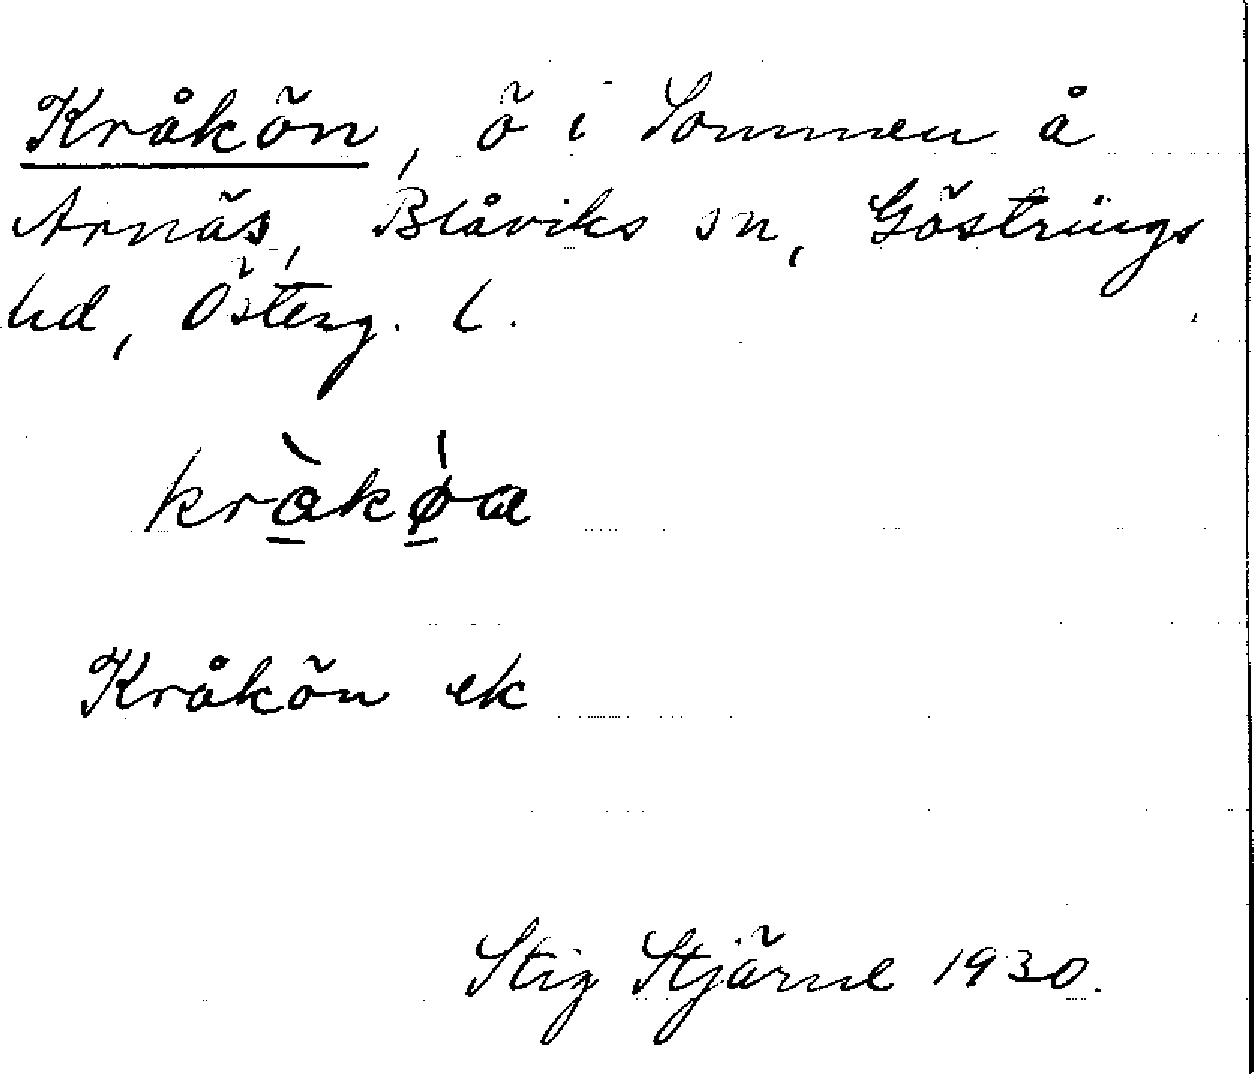 Kråkön, ö i Sommen å
Arnäs, Blåviks sn, Göstrings
hd, Österg. l.
kràkø̀a
Kråkön ek
Stig Stjärne 1930.